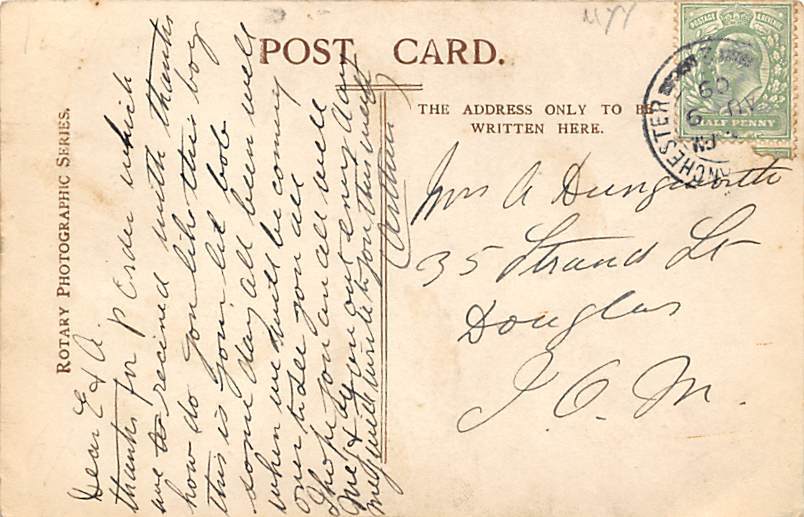 POST CARD.
THE ADDRESS ONLY TO BE
WRITTEN HERE.
ROTARY PHOTOGRAPHIC SERIES.
POSTAGE & REVENUE
HALF PENNY
MANCHESTER
AU 9
09
Mrs A Dungworth
35 Strand St
Douglas
I. O. M.
Dear E & A.
thanks for P Order which
we recived with thanks
how do you like this boy
this is your lit bob
some day all been well
when we will be coming
over to see you all
I hope you are all well
we are
Meg will write to you this week
Arthur